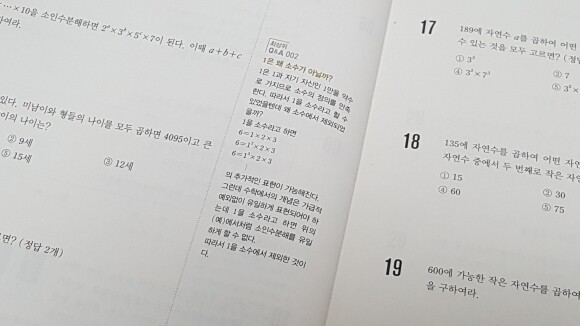 …×10을 소인수분해하면 2ᵃ×3ᵇ×5ᶜ×7이 된다. 이때 a+b+c
하여라.
있다. 미남이와 형들의 나이를 모두 곱하면 4095이고 큰
이의 나이는?
② 9세
③ 12세
⑤ 15세
면? (정답 2개)
최상위
Q&A 002
1은 왜 소수가 아닐까?
1은 1과 자기 자신인 1만을 약수
로 가지므로 소수의 정의를 만족
한다. 따라서 1을 소수라고 할 수
있었을텐데 왜 소수에서 제외되었
을까?
1을 소수라고 하면
6=1×2×3
6=1²×2×3
6=1³×2×3
⋮
의 추가적인 표현이 가능해진다.
그런데 수학에서의 개념은 가급적
예외없이 유일하게 표현되어야 하
는데 1을 소수라고 하면 위의
(예)에서처럼 소인수분해를 유일
하게 할 수 없다.
따라서 1을 소수에서 제외한 것이
다.
17
189에 자연수 a를 곱하여 어떤
수 있는 것을 모두 고르면? (정답
① 3³
② 7
④ 3³×7²
18
135에 자연수를 곱하여 어떤 자연
자연수 중에서 두 번째로 작은 자연
① 15
② 30
④ 60
⑤ 75
19
600에 가능한 작은 자연수를 곱하여
을 구하여라.